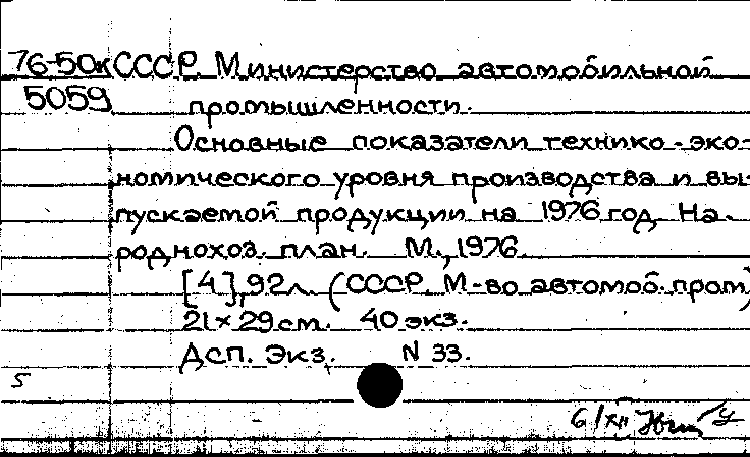 76-50к СССР. Министерство автомобильной
5059 промышленности.
Основные показатели технико-эко-
номического уровня производства и вы-
пускаемой продукции на 1976 год. На-
роднохоз. план. М., 1976.
[4], 92л. (СССР. М-во автомоб. пром)
21×29см. 40 экз.
Дсп. Экз. N 33.
5
6/XII